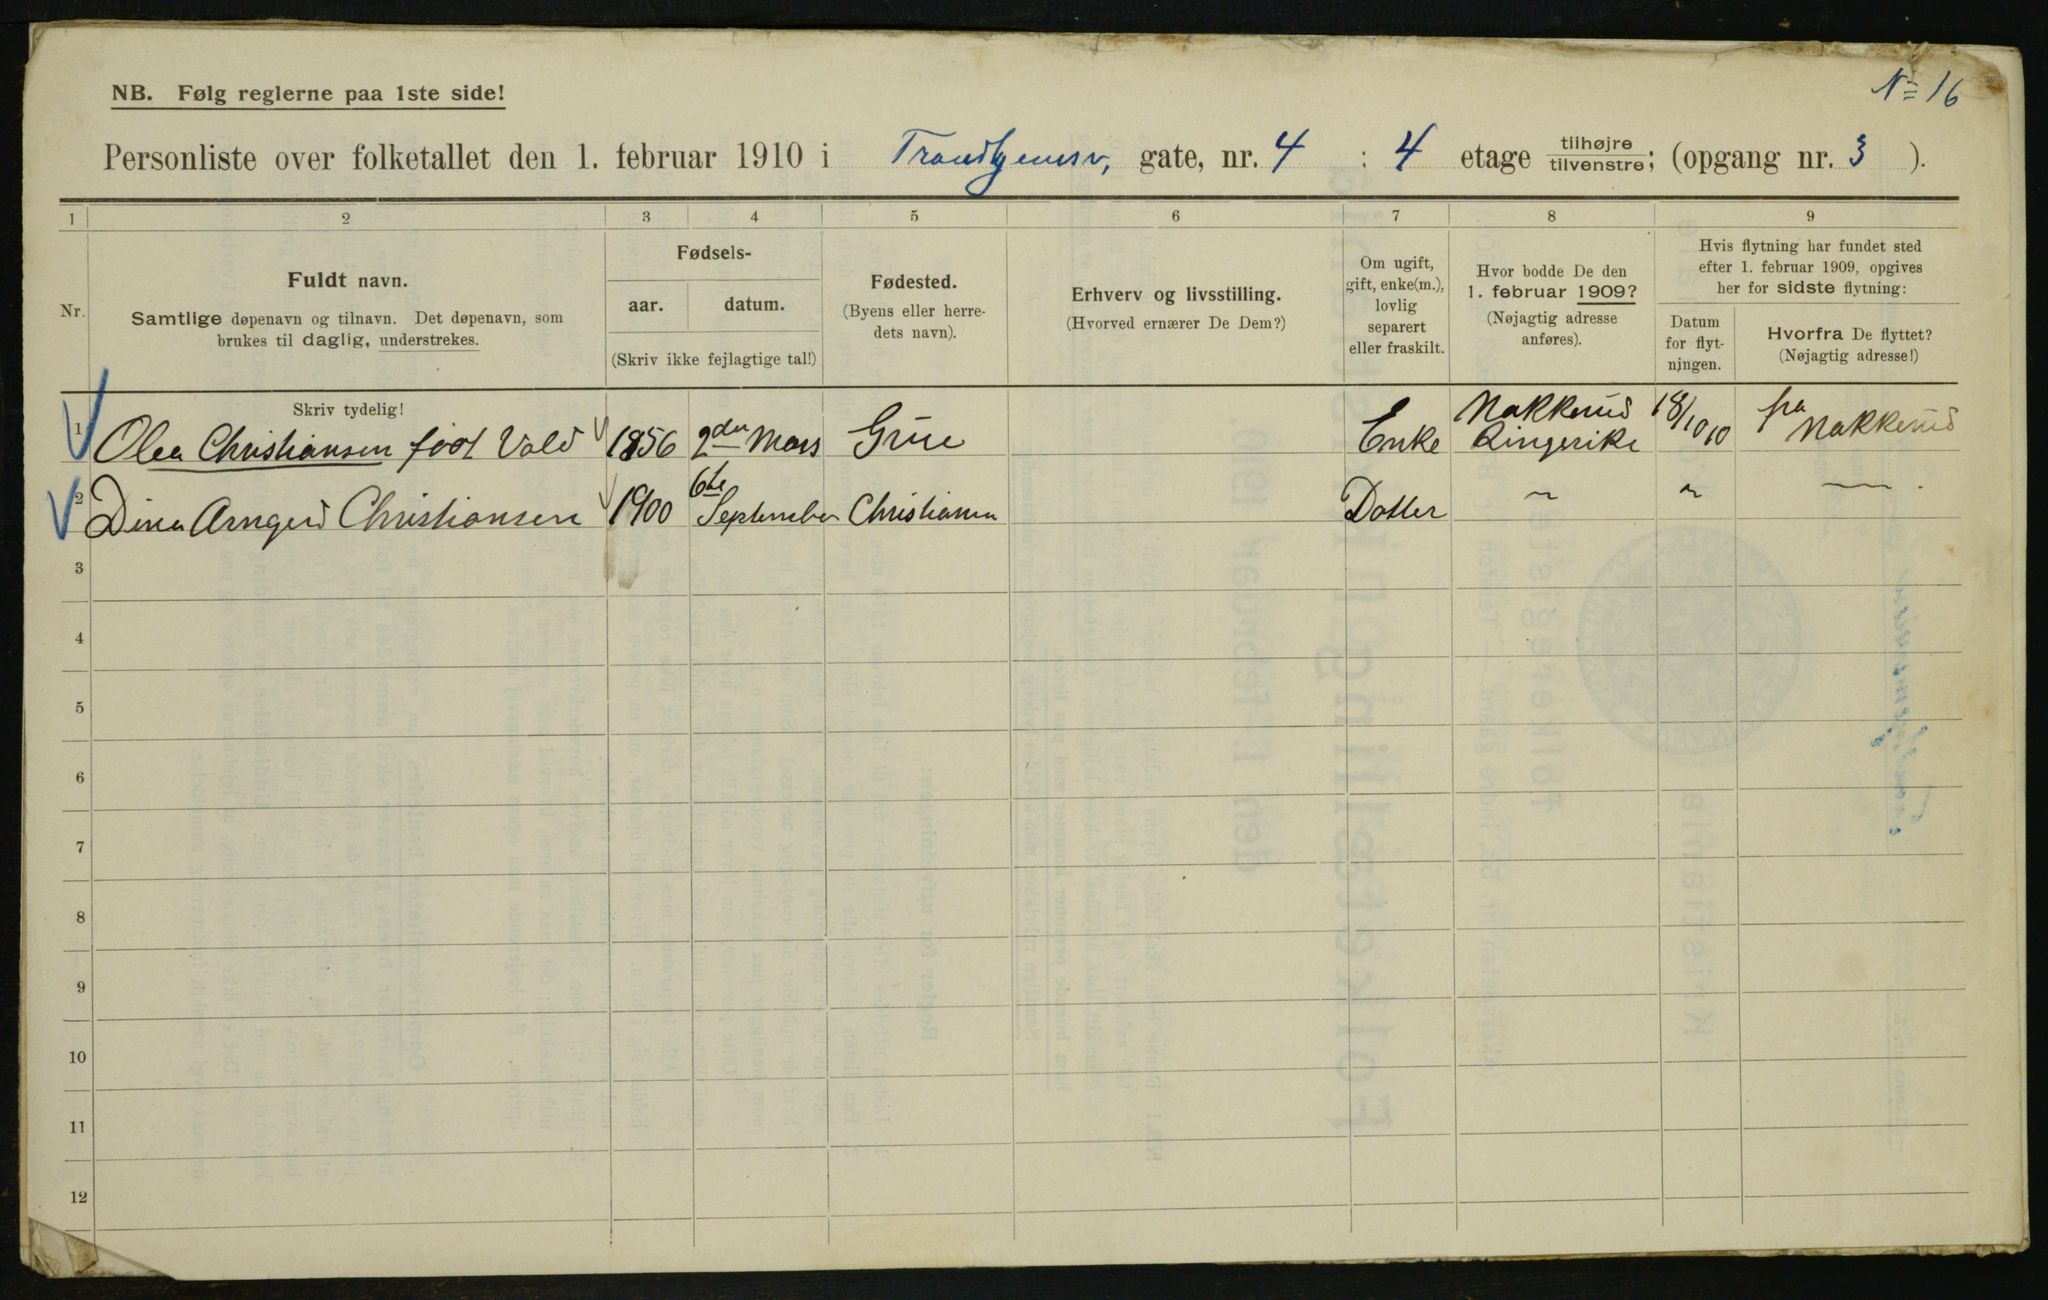 № 16
NB. Følg reglerne paa 1ste side!
Personliste over folketallet den 1. februar 1910 i Trondhjemsv, gate, nr. 4 : 4 etage tilhøjre tilvenstre; (opgang nr. 3 ).
1 2 3 4 5 6 7 8 9
Nr.
Fuldt navn.
Samtlige døpenavn og tilnavn. Det døpenavn, som
brukes til daglig, understrekes.
Skriv tydelig!
Fødsels-
aar. datum.
(Skriv ikke fejlagtige tal!)
Fødested.
(Byens eller herre-
dets navn).
Erhverv og livsstilling.
(Hvorved ernærer De Dem?)
Om ugift,
gift, enke(m.),
lovlig
separert
eller fraskilt.
Hvor bodde De den
1. februar 1909?
(Nøjagtig adresse
anføres).
Hvis flytning har fundet sted
efter 1. februar 1909, opgives
her for sidste flytning:
Datum
for flyt-
ningen.
Hvorfra De flyttet?
(Nøjagtig adresse!)
1 Olea Christiansen født Vold 1856 2den Mars Grue Enke Nakkerud Ringerike 18/10 10 fra Nakkerud
2 Dina Arngerd Christiansen 1900 6te September Christiania Datter " " — .
3
4
5
6
7
8
9
10
11
12